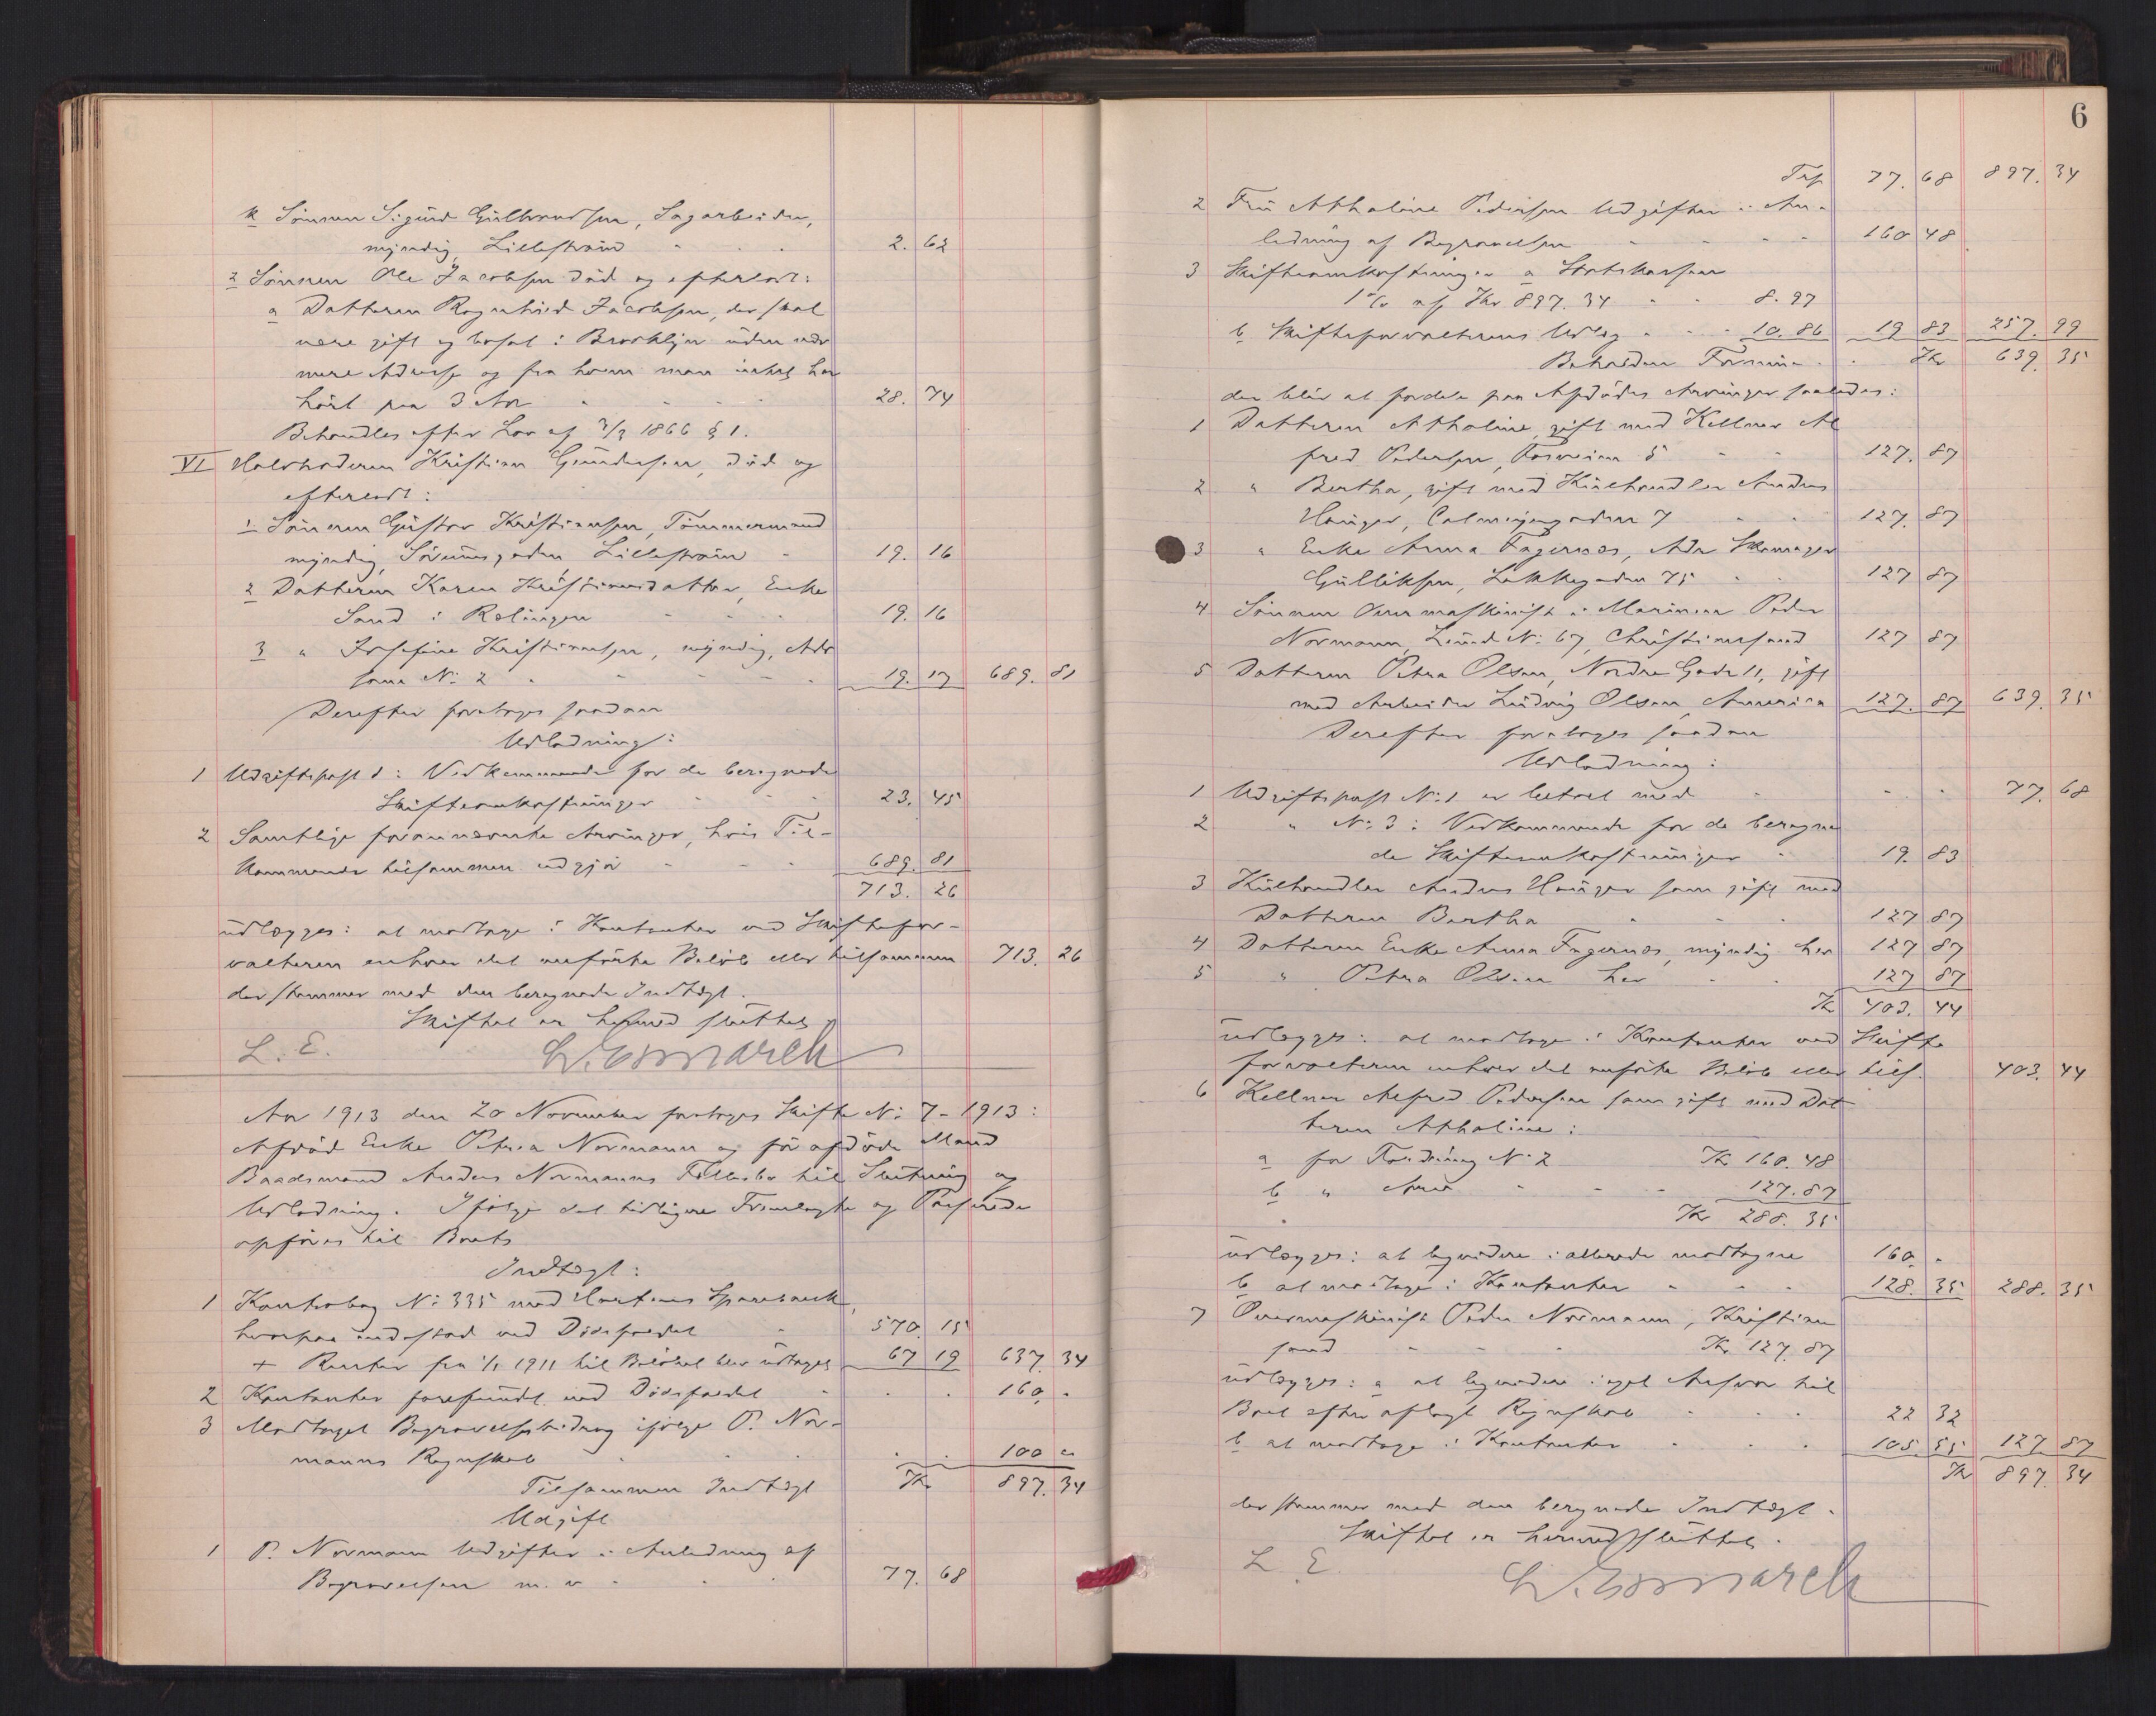 k Sönnen Sigurd Gulbrandsen, Sagarbeider,
myndig, Lillestrøm - - - 2. 62
2 Sönnen Ole Jacobsen död og efterlod:
a Datteren Ragnhild Jacobsen, der skal
være gift og bosat i Brooklyn uden nær
mere Adresse og fra hvem man intet har
hört paa 3 Aar - - - 28. 74
Behandles efter Lov af 1866 § 1.
VI Halvbroderen Kristian Gundersen, död og
efterlod:
1 Sönnen Gustav Kristiansen, Tömmermand
myndig, Lillestrøm - 19. 16
2 Datteren Karen Kristiansdatter, Enke
Sand i Rælingen - - - 19. 16
3 " Josefine Kristiansen, myndig, Adr
som No 2 - - - - - 19. 17 689. 81
Derefter foretages saadan
Udlodning:
1 Udgiftspost d: Vedkommende for de beregnede
Skifteomkostninger - - - 23. 45
2 Samtlige forannævnte Arvinger, hvis Til-
kommende tilsammen udgjör - - - 689. 81
713. 26
udlægges: at modtage i Kontanter ved Skiftefor-
valteren enhver det anförte Belöb eller tilsammen 713. 26
der stemmer med den beregnede Indtægt.
Skiftet er hermed sluttet.
L. E. L. Esmarch
Aar 1913 den 20 November foretoges Skifte No 7 - 1913:
Afdöd Enke Petrea Normann og för afdöde Mand
Baadsmand Anders Normanns Fællesbo til Slutning og
Udlodning. Ifölge det tidligere Fremlagte og Passerede
opföres til Boets
Indtægt:
1 Kontrabog No 335 med Hortens Sparebank,
hvorpaa indestod ved Dödsfaldet - 570. 15
+ Renter fra 1/1 1911 til Belöbet blev udtaget 67 19 637. 34
2 Kontanter forefundet ved Dödsfaldet - - - 160. -
3 Modtaget Begravelsesbidrag ifölge P. Nor-
manns Regnskab - - - - 100 "
Tilsammen Indtægt Kr 897. 34
Udgift
1 P. Normann Udgifter i Anledning af
Begravelsen m. v - - - 77. 68
6
Trsp 77. 68 897. 34
2 Fru Athaline Pedersen Udgifter i An-
ledning af Begravelsen - - - - 160 48
3 Skifteomkostninger a Statskassen
1 % af Kr 897. 34 - - 8. 97
b Skifteforvalterens Udlæg - - - 10. 86 19 83 257. 99
Beholden Formue - - Kr 639. 35
der bliver at fordele paa Afdödes Arvinger saaledes:
1 Datteren Athaline, gift med Kellner Al
fred Pedersen, 5 - - 127. 87
2 " Bertha, gift med Kulhandler Anders
Hauger, Calmeyergaden 7 - - 127. 87
3 " Enke Anna Fagernæs, Adr Skomager
Gulliksen, Lakkegaden 75 - - 127 87
4 Sönnen Overmaskinist i Marinen Peder
Normann, Lund No 67, Christianssand 127 87
5 Datteren Petra Olsen, Nordre Gade 11, gift
med Arbeider Ludvig Olsen, Amerika 127. 87 639. 35
Derefter foretages saadan
Udlodning:
1 Udgiftspost No 1 er betalt med - - - - 77. 68
2 " No 3: Vedkommende for de beregne
de Skifteomkostninger - 19. 83
3 Kulhandler Anders Hauger som gift med
Datteren Bertha - - - 127 87
4 Datteren Enke Anna Fagernæs, myndig her 127 87
5 " Petra Olsen her - - 127 87
Kr 403. 44
udlægges: at modtage i Kontanter ved Skifte
forvalteren enhver det anförte Belöb eller tils. 403. 44
6 Kellner Alfred Pedersen som gift med Dat
teren Athaline:
a for Fordring No 2 Kr 160. 48
b " Arv - - - 127. 87
Kr 288. 35
udlægges: at likvidere i allerede modtagne 160. -
b at modtage i Kontanter - - - 128. 35 288. 35
7 Overmaskinist Peder Normann, Kristian
sand - - - Kr 127. 87
udlægges: a at likvidere i eget Ansvar til
Boet efter aflagt Regnskab - - - 22 32
b at modtage i Kontanter - - - 105. 55 127 87
Kr 897. 34
der stemmer med den beregnede Indtægt.
Skiftet er hermed sluttet.
L. E. L. Esmarch